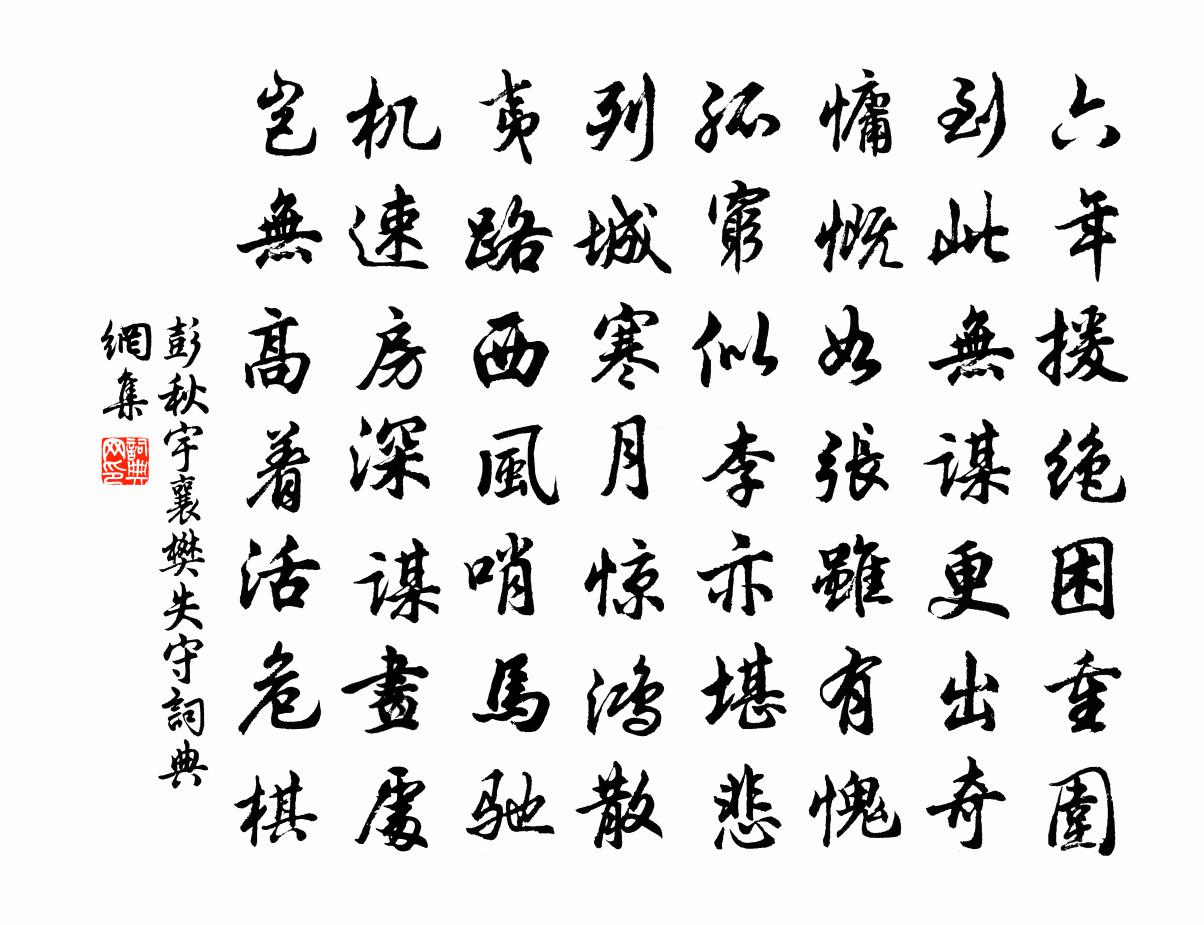 六年援绝困重圍
到此無謀更出奇
慵慨如張雖有愧
孤窮似李亦堪悲
列城寒月惊鴻散
夷路西風哨馬驰
机速房深謀畫處
岂無高着活危棋
彭秋宇襄樊失守詞典
網集
詞典
网印